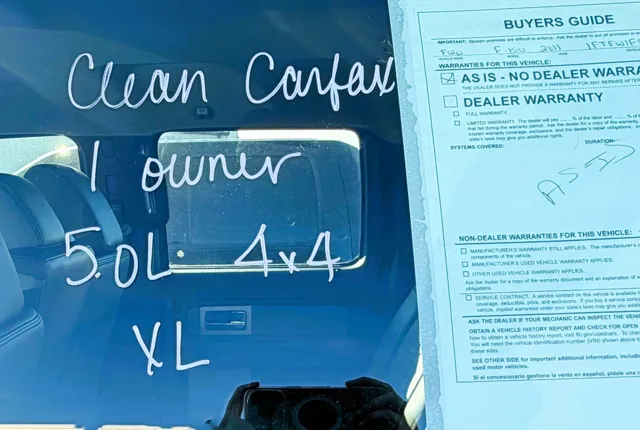 Clean Carfax
1 owner
5.0L 4x4
XL
BUYERS GUIDE
IMPORTANT: Spoken promises are difficult to enforce. Ask the dealer to put all promises in
Ford F-150 2011 1FTFW1F
WARRANTIES FOR THIS VEHICLE:
AS IS - NO DEALER WARRA
THE DEALER DOES NOT PROVIDE A WARRANTY FOR ANY REPAIRS AFTER
DEALER WARRANTY
FULL WARRANTY.
LIMITED WARRANTY. The dealer will pay % of the labor and % of
that fail during the warranty period. Ask the dealer for a copy of the warranty,
explain warranty coverage, exclusions, and the dealer's repair obligations.
state's laws may give you additional rights.
SYSTEMS COVERED: DURATION:
AS-IS
NON-DEALER WARRANTIES FOR THIS VEHICLE:
MANUFACTURER'S WARRANTY STILL APPLIES. The manufacturer's
components of the vehicle.
MANUFACTURER'S USED VEHICLE WARRANTY APPLIES.
OTHER USED VEHICLE WARRANTY APPLIES.
Ask the dealer for a copy of the warranty document and an explanation of
obligations.
SERVICE CONTRACT. A service contract on this vehicle is available
coverage, deductible, price, and exclusions. If you buy a service
vehicle, implied warranties under your state's laws may give you
ASK THE DEALER IF YOUR MECHANIC CAN INSPECT THE
OBTAIN A VEHICLE HISTORY REPORT AND CHECK FOR OPEN
how to obtain a vehicle history report, visit ftc.gov/usedcars. To
You will need the vehicle identification number (VIN) shown above
these sites.
SEE OTHER SIDE for important additional information,
used motor vehicles.
Si el concesionario gestiona la venta en español, pídale una